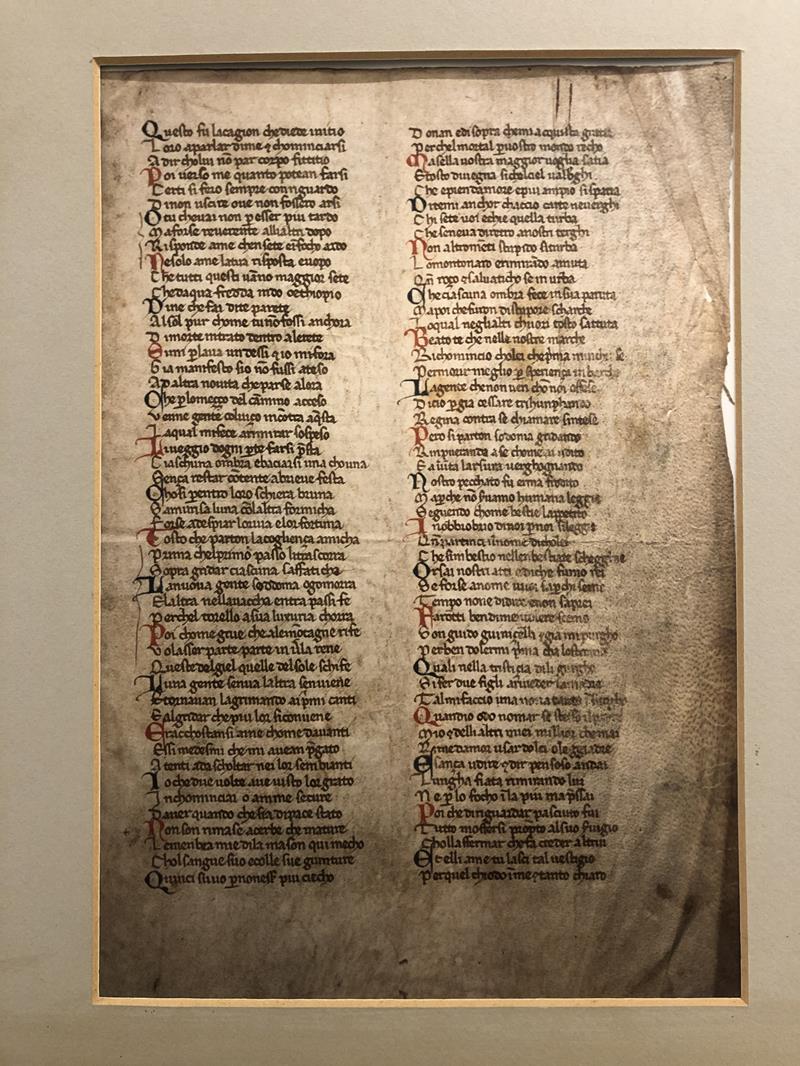 Questo fu lacagion chediede initio
Loro aparlar dime & chominciarsi
Adir cholui nō par corpo fittitio
Poi verso me quanto potean farsi
Certi si fero sempre con riguardo
Dinon uscire oue non fossero arsi
O tu cheuai non p esser piu tardo
Maforse reuerente allialtri dopo
Rispondi ame chen sete enfocho ardo
Nesolo ame latua risposta euopo
Che tutti questi
maggior sete
Chedaqua fredda indo oethiopio
Dine che fai dite parete
Alsol pur chome tunō fossi anchora
Dimorte intrato dentro alerete
Simi plaua undessi & io mifora
Gia manifesto sio nō fussi ateso
Ad altra nouita cheparse alora
Che plomeço del cāmino acceso
Venne gente coluiso incōtra aqsta
Laqual mifece arimirar sospeso
Liueggio dogni pte farsi psta
Ciaschuna ombra ebaciarsi una chouna
Sença restar cōtente abrieue festa
Chosi pentro loro schiera bruna
Samusisa luna cōlaltra formicha
Forse adespiar louia elor fortuna
Tosto che parton lacoglienca amicha
Prima chelprimo passo litrascorra
Sopra gridar ciascuna saffaticha
Lanuoua gente soddoma ogomorra
Elaltra nellauaccha entra passife
Perchel torello asua luxuria chorra
Poi chome grue che alemōtagne rife
Volasser parte parte in
rene
Queste delgiel quelle delsole schife
Luna gente senua laltra senuiene
Etornauan lagrimando aipmi canti
Salgridar chepiu lor siconuiene
Eracchostansi ame chome dauanti
Essi medesmi che mi auean pgato
Atenti ada scholtar nei lor sembianti
Io che due volte aue uisto lor grato
Inchominciai o anime secure
Dauer quando che sia dipace stato
Non son rimase acerbe che mature
Lemenbra mie dila mason qui mecho
Chol sangue suo ecolle sue giunture
Quinci suuo pnoness piu ciecho
Donan edisopra chemi acquista gratia
Perchel mortal puostro mondo recho
Masella uostra maggior uoglia satia
Stosto duegna sichelciel ualberghi
Che epiendamore epiu ampio si spatia
Ditemi anchor chaccio carte neuerghi
Chi sete uoi echie quella turba
Che seneua diretro anostri terghi
Non altrimenti stupido siturba
Lomontonaro erimirādo amuta
Qn roço & saluaticho se in urba
Che ciascuna ombra fece in sua paruta
Mapoi che furon distupore scharche
Loqual neglialti chuori tosto sattuta
Beato te che nelle nostre marche
Richomincio cholei che pria
Per morir meglio
Lagente chenon uen cho noi offese
Dicio pgia cessare triumphando
Regina contra se chiamare sintese
Pero si parton sodoma gridando
Rimprouerando a se chome ai udito
Eaiuta larsura uerghognando
Nostro pecchato fu ermafrodito
Mapche nō seruamo humana legge
Seguendo chome bestie lappetito
In obbrobrio dinoi pnoi silegge
Qn partinci ilnome dicholei
Che simbestio nellenbestiate schegge
Or sai nostri atti ediche fumo rei
Se forse anome uuoi saper chi semo
Tempo none didire enon saprei
Farotti bendime uolere scemo
Son guido guiniçelli & gia mi purgho
Per ben dolermi pria
Quali nella tristitia di ligurgho
Sifer due figli ariueder la madre
Tal mi faccio
Quando odo nomar se stesso il padre
Mio & delli altri miei miglior che mai
Rime damor usar dolci e leggiadre
Esança udire & dir pensoso andai
Lungha fiata rimirando lui
Ne p lo focho ī la piu mapssai
Poi che diriguardar pasciuto fui
Tutto moffersi propto al suo seruigio
Chollaffermar che fa creder altrui
Et elli ame tu lasci tal uestigio
Perquel chiodo īme & tanto chiaro